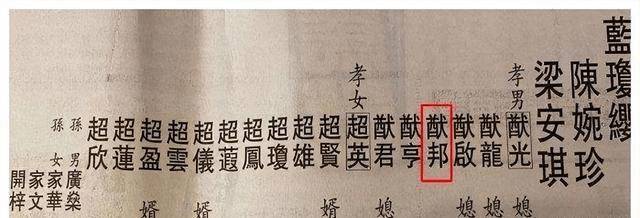 藍瓊纓
陳婉珍
梁安琪
孝男猷光 媳
猷龍 媳
猷啟 媳
猷邦
猷亨
猷君 媳
孝女超英
超賢 婿
超雄
超瓊
超鳳
超蕸
超儀 婿
超雲
超盈 婿
超蓮
超欣
孫男廣燊
孫女家華
家文
開梓